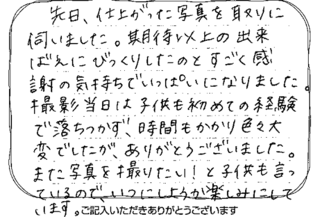 先日、仕上がった写真を取りに
伺いました。期待以上の出来
ばえにびっくりしたのとすごく感
謝の気持ちでいっぱいになりました。
撮影当日は子供も初めての経験
で落ちつかず、時間もかかり色々大
変でしたが、ありがとうございました。
また写真を撮りたい!と子供も言っ
ているので、いつにしようか楽しみにして
います。ご記入いただきありがとうございます